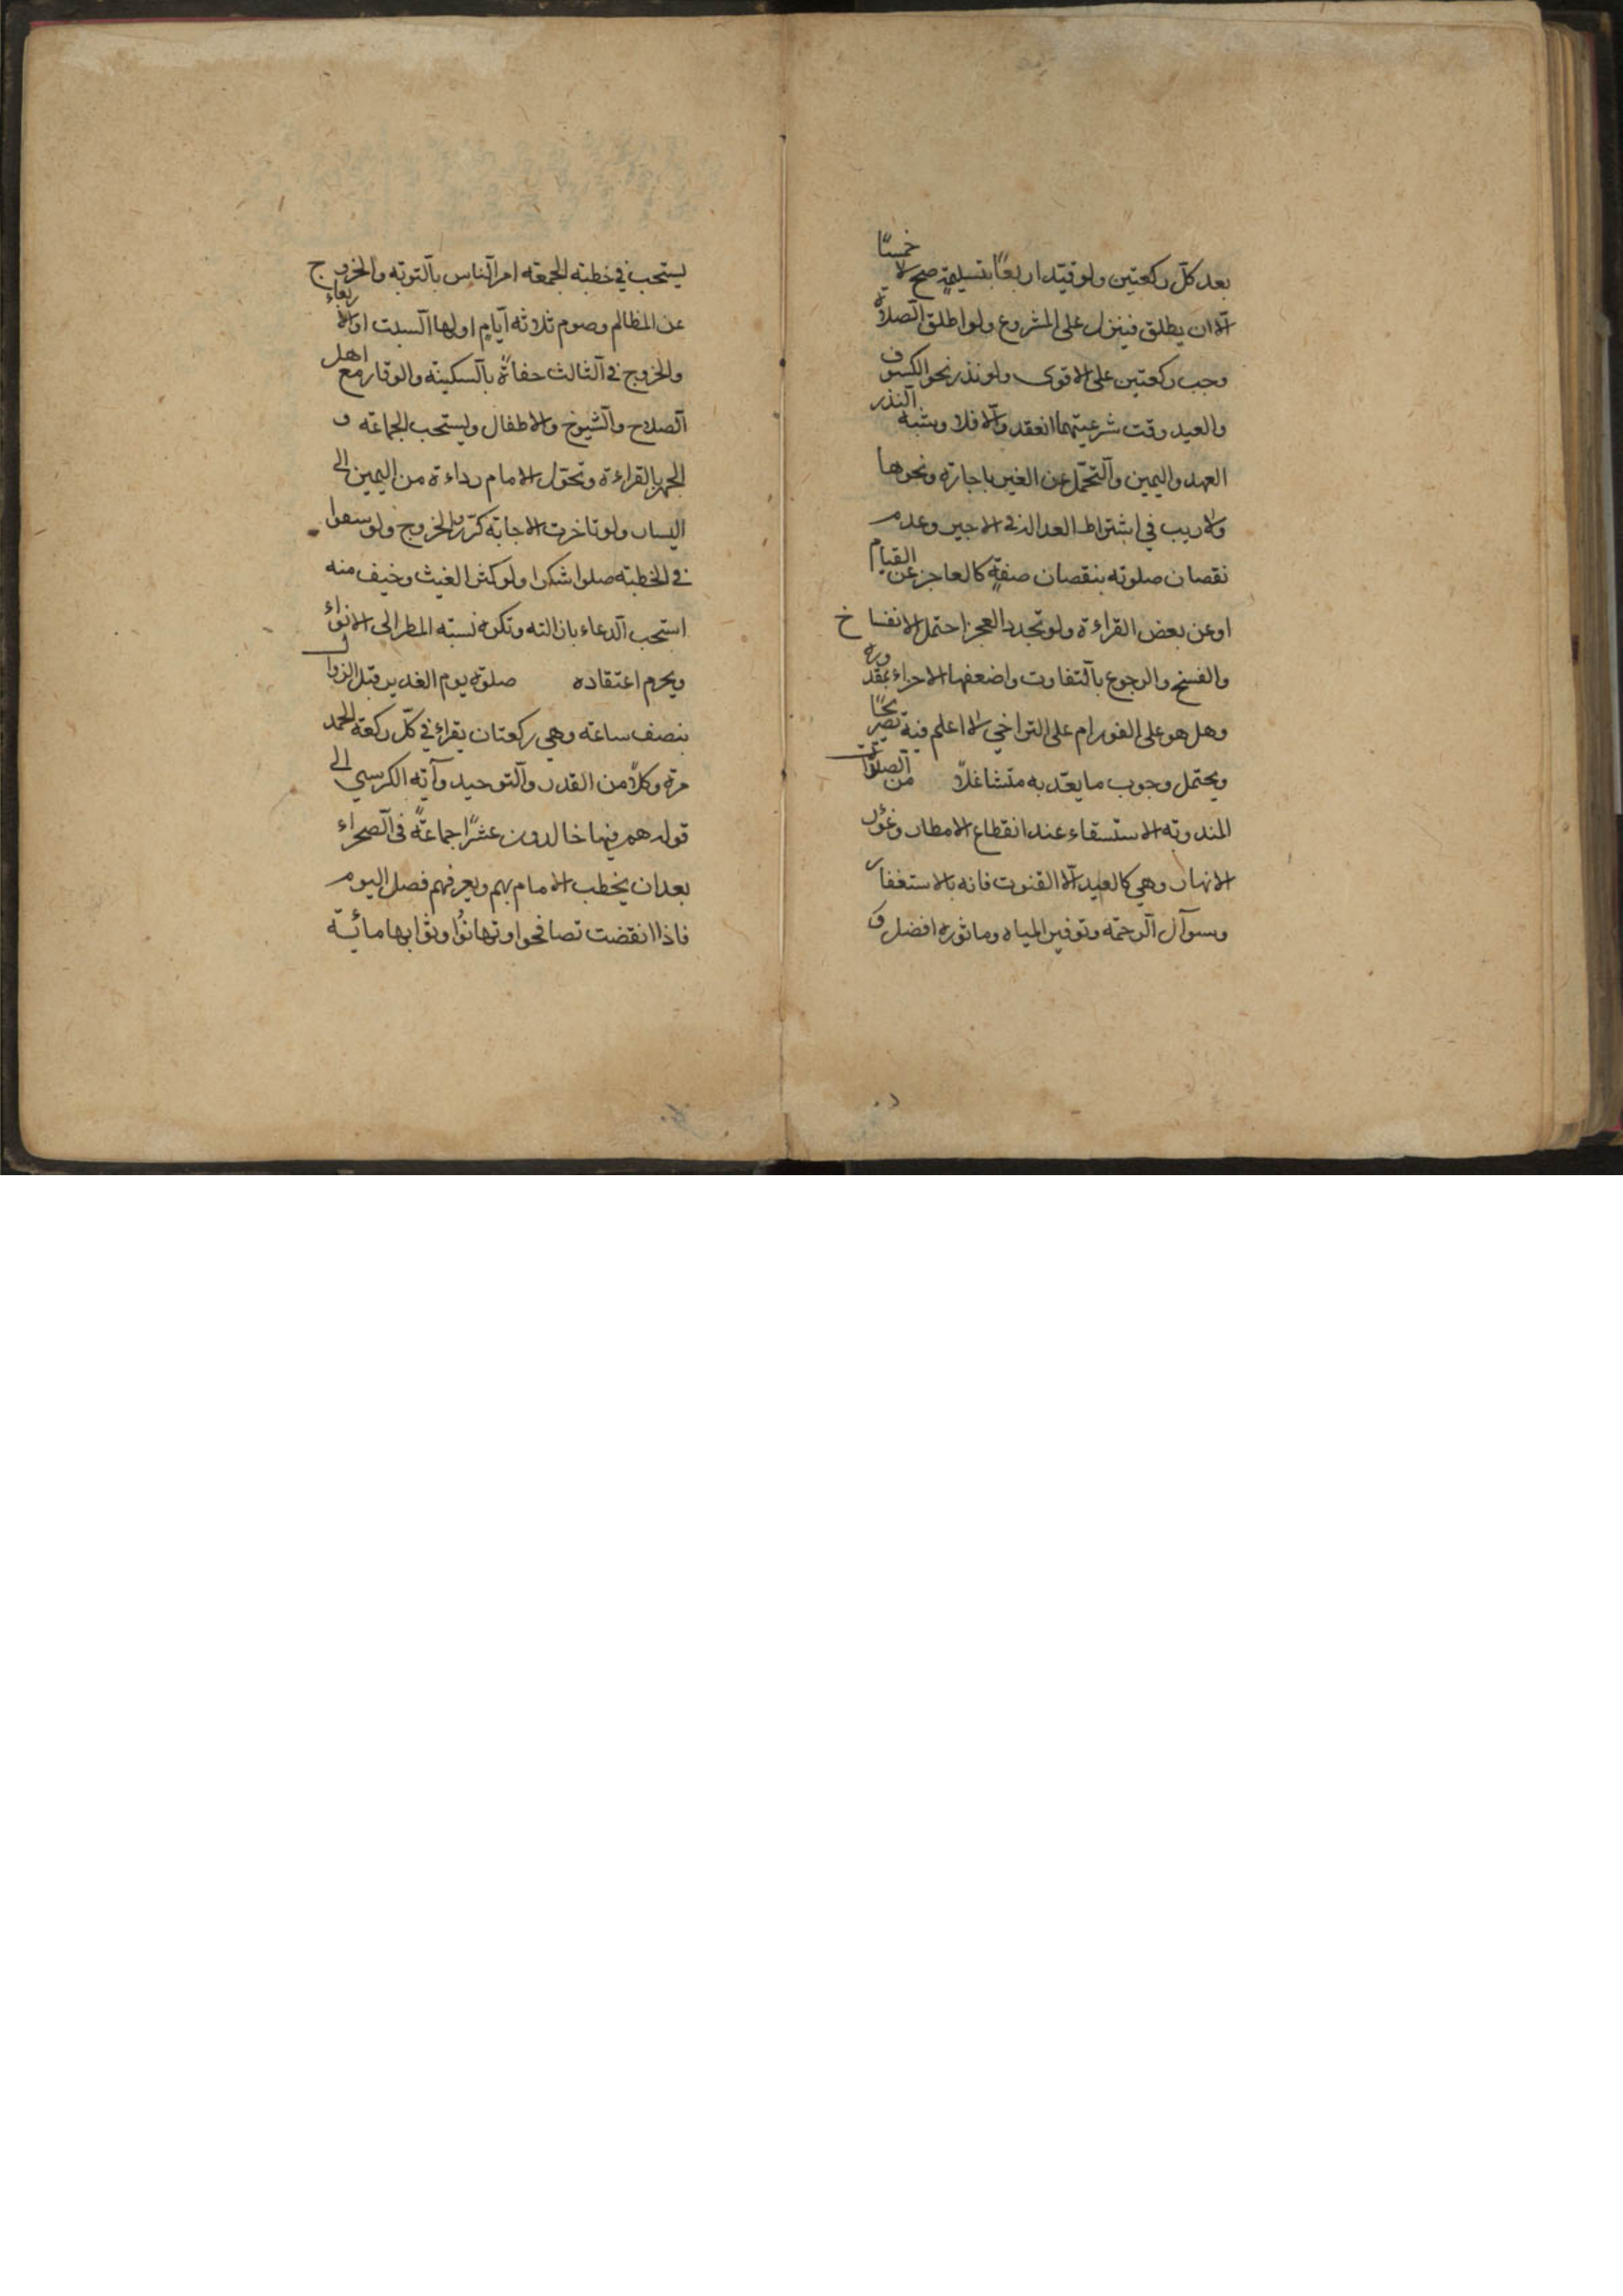 بعد كلّ ركعتين ولو قيّد اربعًا بتسليمةٍ صح لا خمسًا
الّا ان يطلق فينزل على المشروع ولو اطلق الصلاة
وجب ركعتين على الاقوى ولو نذر نحو الكسوف
والعيد وقت شرعيتهما انعقد والّا فلا وشبه النذر
العهد واليمين والتحمّل عن الغير باجارة ونحوها
ولا ريب في اشتراط العدالة في الاجير وعدم
نقصان صلوته بنقصان صفةٍ كالعاجز عن القيام
او عن بعض القراءة ولو تجدد العجز احتمل الانفساخ
والفسخ والرجوع بالتفاوت واضعفها الاجراء بمقدوره
وهل هو على الفور ام على التراخي لا اعلم فيه تصريحًا
ويحتمل وجوب ما يعدّ به متشاغلاً من الصلوات
المندوبه الاستسقاء عند انقطاع الامطار وغؤر
الانهار وهي كالعيد الّا القنوت فانه بالاستغفار
وسوآل الرحمة وتوفير المياه وماثوره افضل و
يستحب في خطبة الجمعة امر الناس بالتوبة والخروج
عن المظالم وصوم ثلاثه ايّام اولها السبت او الاربعاء
والخروج في الثالث حفاةً بالسكينة والوقار مع اهل
الصلاح والشيوخ والاطفال ويستحب الجماعة و
الجهر بالقراءة وتحوّل الامام رداءه من اليمين الى
اليسار ولو تاخرت الاجابة كرّر الخروج ولو سقوا
في الخطبة صلوا شكرا ولو كثر الغيث وخيف منه
استحب الدعاء بازالته وتكره نسبة المطر الى الانواء
ويحرم اعتقاده صلوة يوم الغدير قبل الزوال
بنصف ساعة وهي ركعتان يقراء في كلّ ركعة الحمد
مرة وكلاًّ من القدر والتوحيد وآية الكرسي الى
قوله هم فيها خالدون عشرًا جماعةً في الصحراء
بعد ان يخطب الامام بهم ويعرفهم فضل اليوم
فاذا انقضت تصافحوا وتهانؤا وثوابها مائة